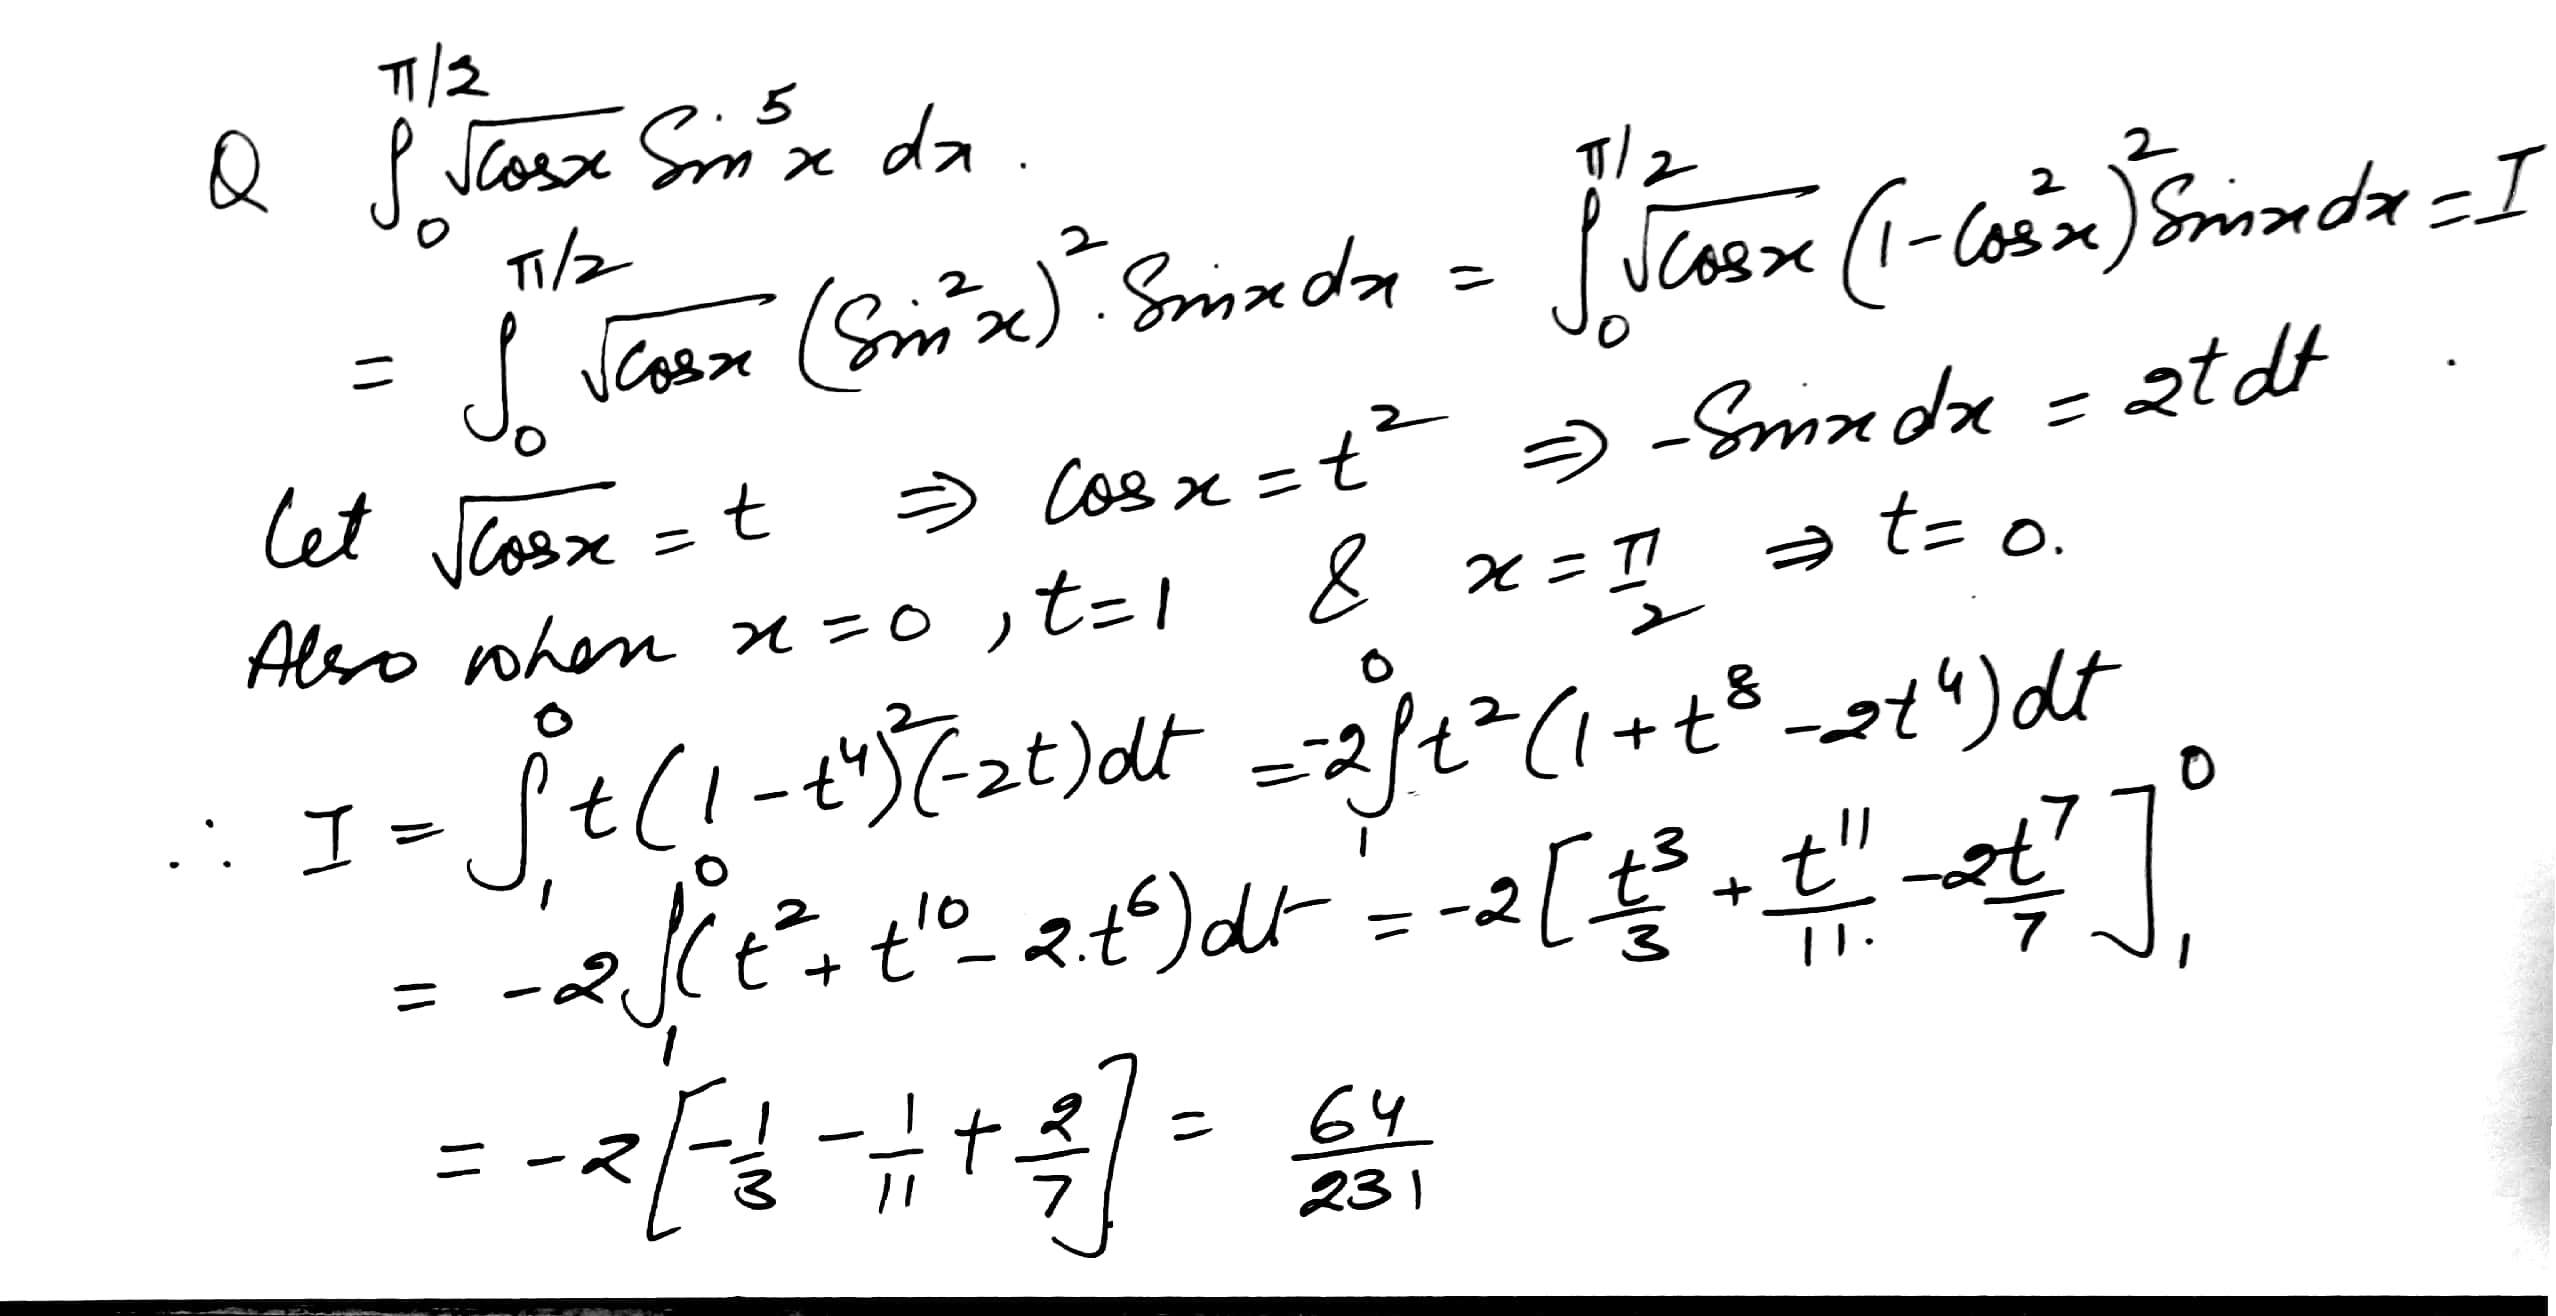 Q ∫₀^{π/2} √cosx Sin⁵x dx.
= ∫₀^{π/2} √cosx (Sin²x)². Sinx dx = ∫₀^{π/2} √cosx (1-cos²x)² Sinx dx = I
Let √cosx = t ⇒ cos x = t² ⇒ -Sinx dx = 2t dt
Also when x = 0, t=1 & x = π/2 ⇒ t = 0.
∴ I = ∫₁⁰ t(1-t⁴)²(-2t)dt = -2∫₁⁰ t²(1+t⁸-2t⁴)dt
= -2∫₁⁰ (t² + t¹⁰ - 2.t⁶)dt = -2[t³/3 + t¹¹/11. - 2t⁷/7]₁⁰
= -2[-1/3 - 1/11 + 2/7] = 64/231